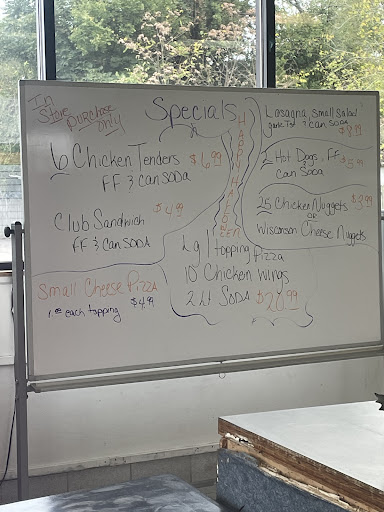 In
Store
purchase
only
Specials
6 Chicken Tenders $6.99
FF & can SODA
Club Sandwich $4.99
FF & can SODA
Small Cheese Pizza
1.00 each topping $4.99
HAPPY HALLOWEEN
Lasagna, small salad
& can SODA
$8.99
2 Hot Dogs, FF & $5.99
can Soda
25 Chicken Nuggets
OR
Wisconsin Cheese Nuggets
Lg 1 topping pizza
10 Chicken wings
2 Lt SODA $20.99